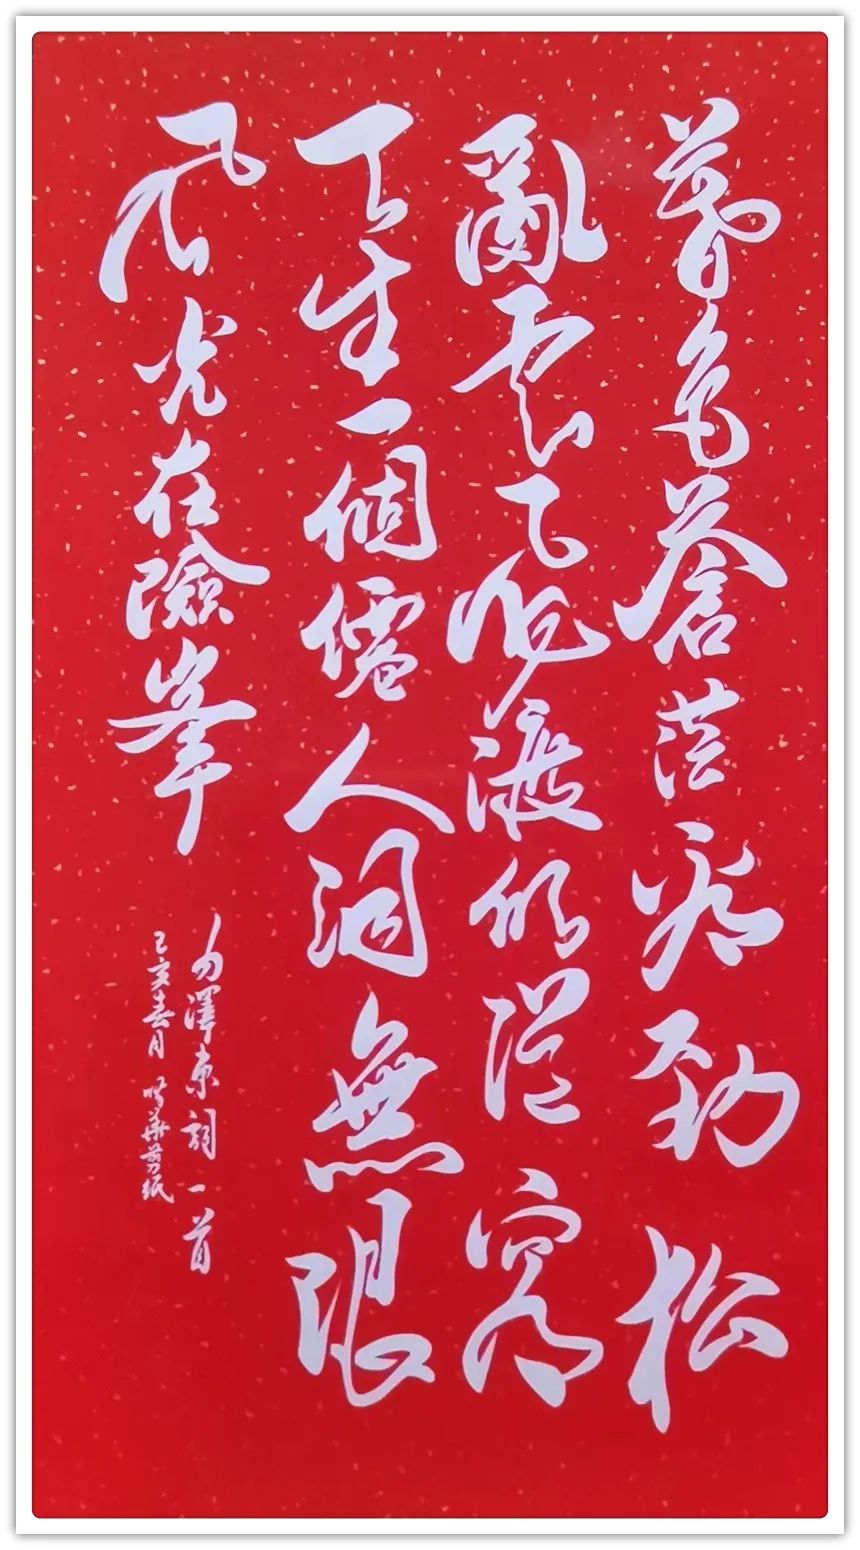 暮色蒼茫看勁松
亂雲飛渡仍從容
天生一個僊人洞無限
風光在險峯
毛澤東詞一首
己亥春月 華剪紙